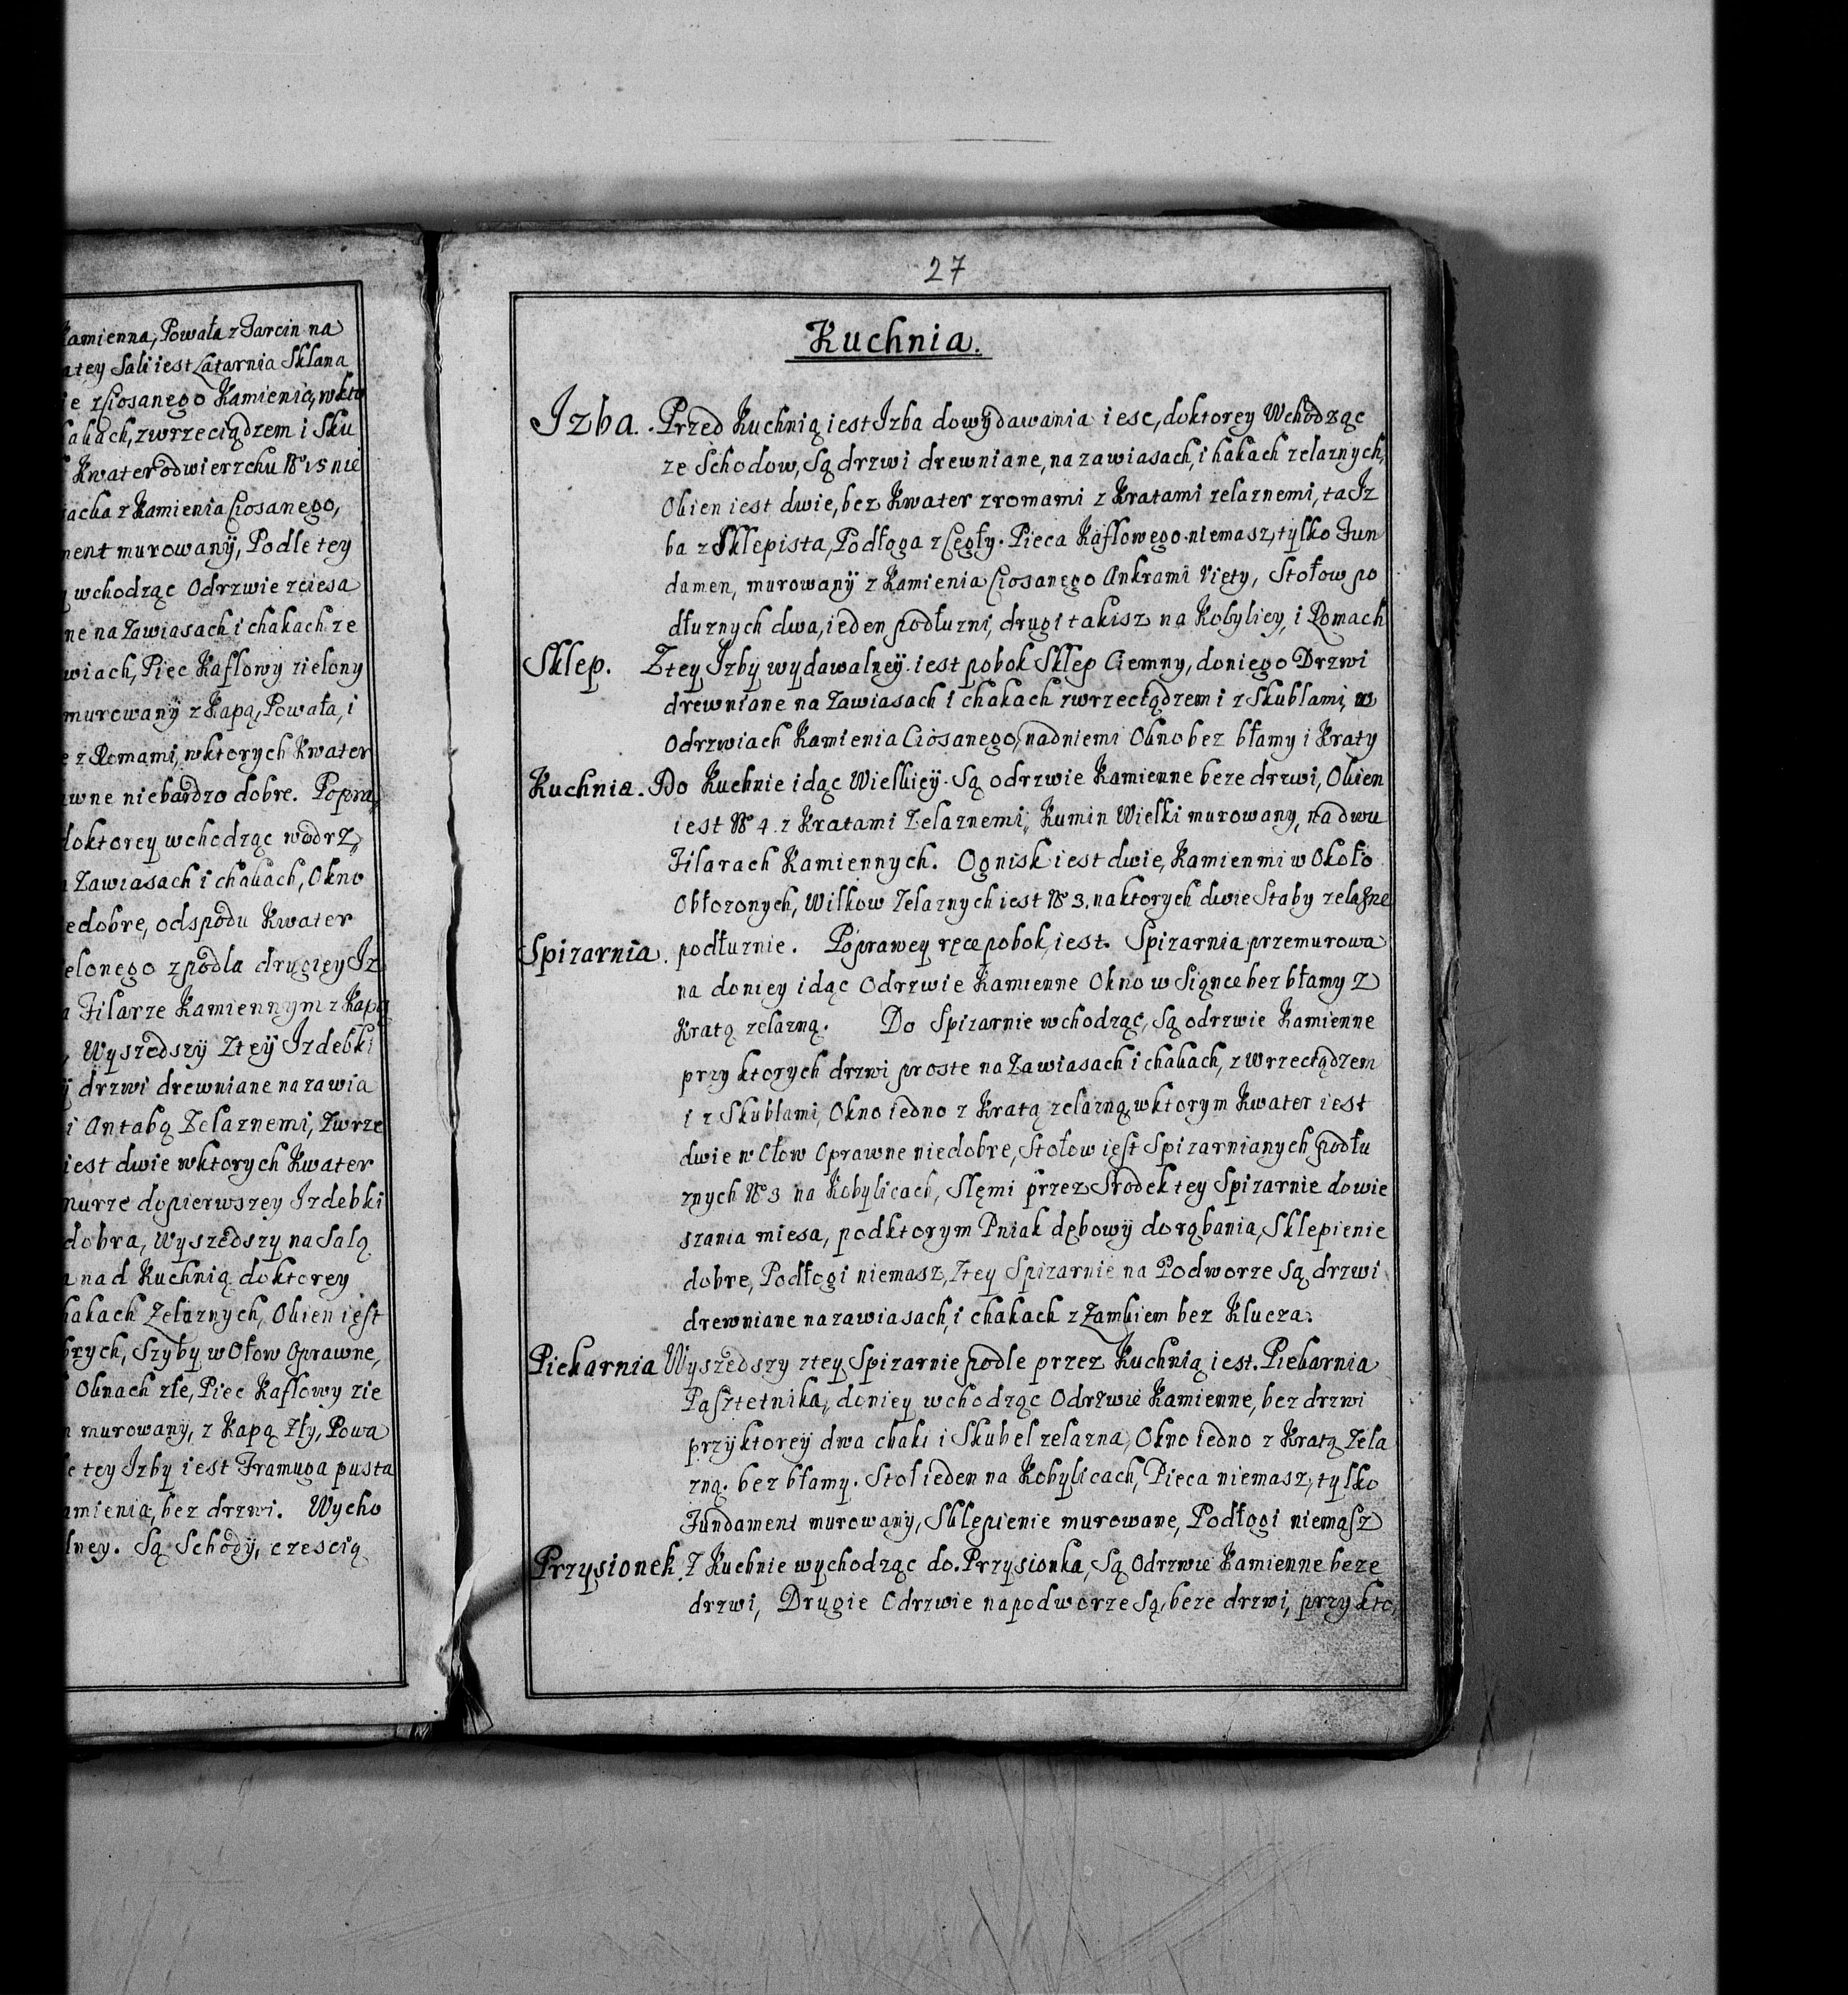 Kamienna, Powała z Tarcin na
atey Sali iest Latarnia Sklana
ie z Ciosanego Kamienia, wkto
hakach, zwrzeciądzem i Sku
Kwater odwierzchu No 15 nie
iacka z Kamienia Ciosanego,
ment murowanÿ, Podle tey
wchodząc Odrzwie zciesa
ne na Zawiasach i chakach ze
wiach, Piec Kaflowy zielony
murowanÿ z Kapą, Powała, i
e z Romami, wktorych Kwater
awne niebardzo dobre. Popra
doktorey wchodząc wodrz
Zawiasach i chakach, Okno
edobre, odspodu Kwater
elonego zpodla drugięy Iz
a Filarze Kamiennym z Kapą
Wyszedszÿ Zteÿ Izdebki
ÿ drzwi drewniane na zawia
i Antabą Zelaznemi, Zwrze
iest dwie wktorych Kwater
murze dopierwszey Izdebki
dobra, Wyszedszy na Salą
a nad Kuchnią doktorey
hakach Zelaznych, Okien iest
brych, Szyby w Ołow Oprawne,
Oknach złe, Piec Kaflowy zie
murowany, z Kapą Zły, Powa
le tey Izby iest Framuga pusta
amienia, bez drzwi. Wycho
lney. Są Schody, czescią
27
Kuchnia.
Izba. Przed Kuchnią iest Izba dowydawania iesc, doktorey Wchodząc
ze Schodow, Są drzwi drewniane, na zawiasach, i hakach zelaznych,
Okien iest dwie, bez Kwater zromami z Kratami zelaznemi, ta Iz
ba z Sklepista, Podłoga z Cegły. Pieca Kaflowego niemasz, tylko Fun
damen, murowanÿ z Kamienia Ciosanego Ankrami Viety, Stołow po
dłuznych dwa, ieden podłuzni, drugi takisz na Kobylicy, i Romach
Sklep. Ztey Izby wydawalneÿ iest pobok Sklep Ciemny, doniego Drzwi
drewniane na Zawiasach i chakach zwrzeciądzem i z Skublami, w
Odrzwiach Kamienia Ciosanego, nadniemi Okno bez błamy i Kraty
Kuchnia. Do Kuchnie idąc Wielkieÿ. Są odrzwie Kamienne beze drzwi, Okien
iest No 4. z Kratami Zelaznemi, Kumin Wielki murowany, na dwu
Filarach Kamiennych. Ognisk iest dwie, Kamienmi w Około
Obłozonych, Wilkow Zelaznych iest No 3. naktorych dwie Staby zelazne
Spizarnia. podłuznie. Poprawey ręce pobok iest. Spizarnia przemurowa
na doniey idąc Odrzwie Kamienne Okno w Siąnce bez błamy Z
Kratą zelazną. Do Spizarnie wchodząc, Są odrzwie Kamienne
przy ktorych drzwi proste na Zawiasach i chakach, z Wrzeciądzem
i z Skubłami, Okno iedno z Kratą zelazną, wktorym Kwater iest
dwie w Ołow Oprawne niedobre, Stołow iest Spizarnianych podłu
znych No 3 na Kobylicach, Slęmi przez Srodek tey Spizarnie dowie
szania miesa, podktorym Pniak dębowÿ dorąbania, Sklepienie
dobre, Podłogi niemasz, Ztey Spizarnie na Podworze Są drzwi
drewniane na zawiasach, i chakach z Zamkiem bez Klucza.
Piekarnia Wyszedszy ztey Spizarnie podle przez Kuchnią iest. Piekarnia
Pasztetnika, doniey wchodząc Odrzwie Kamienne, bez drzwi
przÿktoreÿ dwa chaki i Skubel zelazna, Okno iedno z Kratą Zela
zną. bez błamy. Stoł ieden na Kobylicach, Pieca niemasz, tylko
Fundament murowany, Sklepienie murowane, Podłogi niemasz
Przysionek. Z Kuchnie wychodząc do. Przysionka, Są Odrzwie Kamienne beze
drzwi, Drugie Odrzwie napodworze Są, beze drzwi, przy kto,